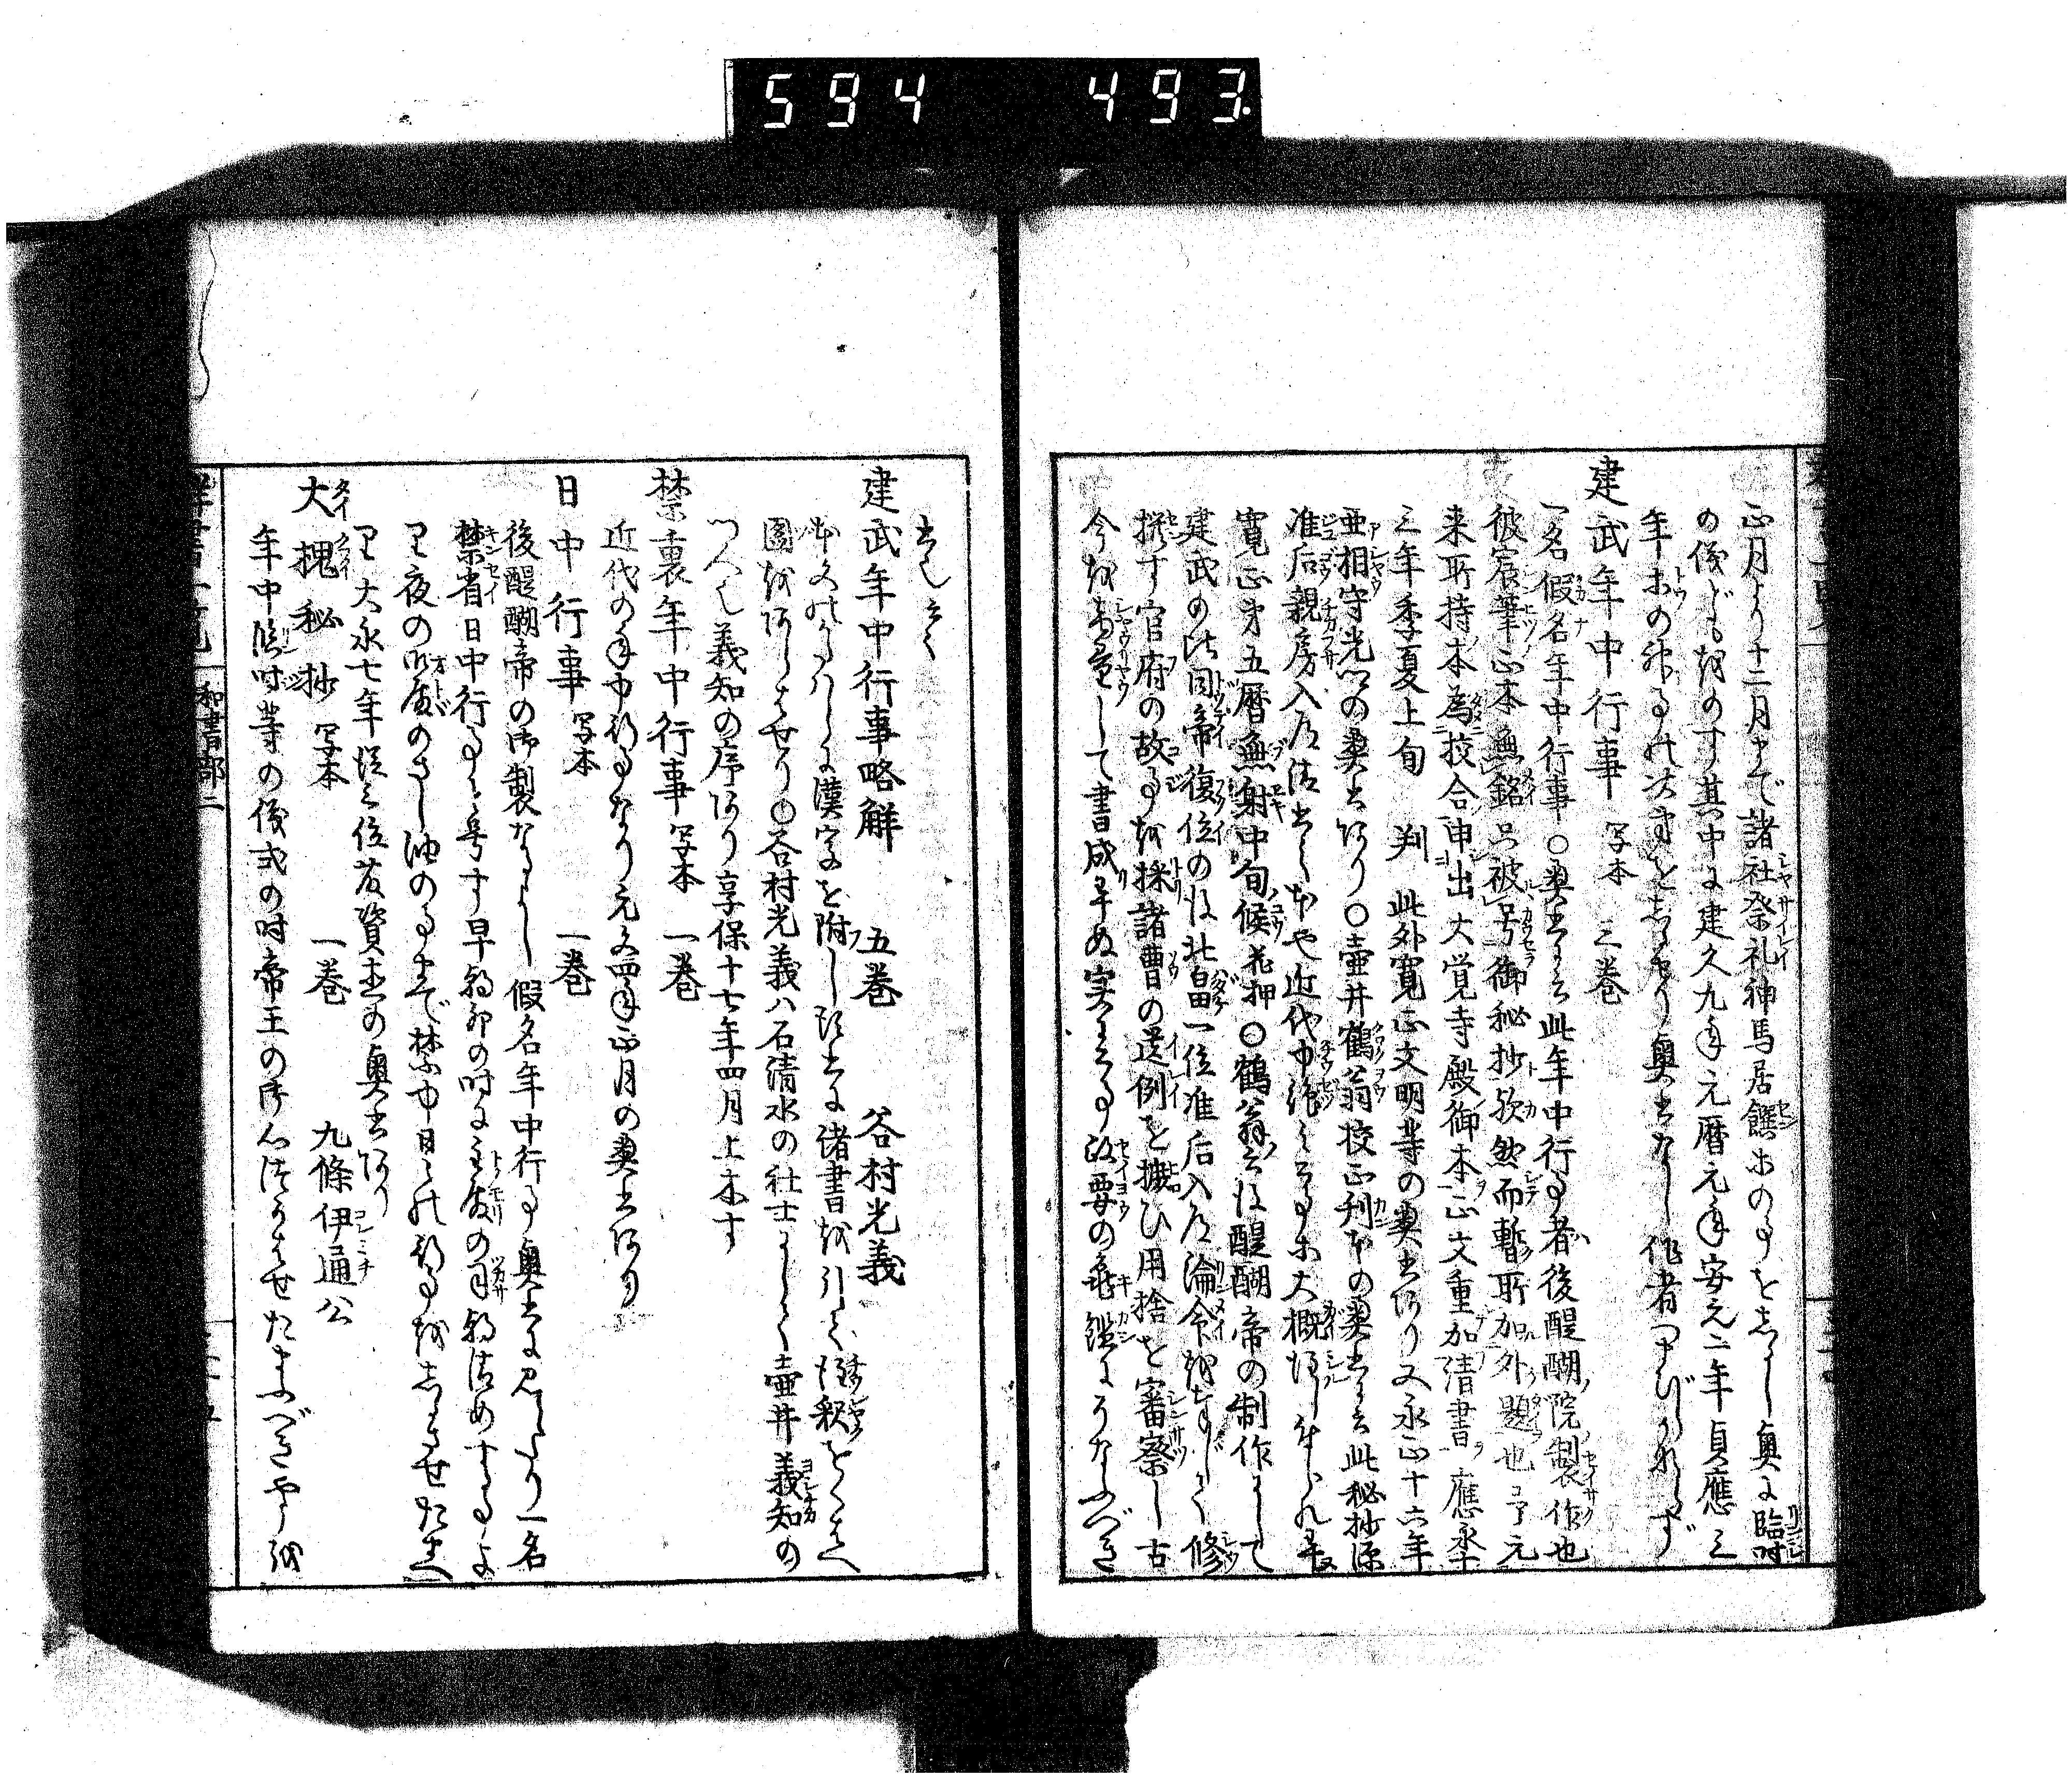 594 493.
正月より十二月まで諸社祭礼神馬居饌ホのヿを志るし奥に臨時
の儀どもをのす其中に建久九年元暦元年安元二年貞應三
年ホの神事の次第をしるせり奥書なし作者つまびらかならず
建武年中行事 写本 三巻
一名假名年中行事○奥書に云此年中行事者後醍醐院製作也
彼宸筆正本無銘只被号御秘抄歟然而暫所加外題也予元
来所持本為挍合申出大覚寺殿御本正文重加清書應永
三年季夏上旬 判 此外寛正文明等の奥書あり又永正十六年
亜相守光公の奥書あり○壷井鶴翁挍正刊本の奥書に云此秘抄源
准后親房入道
寛正第五暦無射中旬候花押○鶴翁云後醍醐帝の制作にして
建武の后同帝復位の後北畠一位准后入道淪命を奉じて修
撰す官府の故事を採諸曹の遺例を摭ひ用捨を審察し古
今を商量して書成畢ぬ実に公事政要の亀鑑にそなふべき
書也云々
建武年中行事略解 五巻 谷村光義
本文のかたハらに漢字を附し頭書に諸書を引て注釈をくはへ
圖をあらはせり○谷村光義ハ石清水の社士にして壷井義知の
門人也義知の序あり享保十七年四月上木す
禁裏年中行事 写本 一巻
近代の年中行事なり元文四年正月の奥書あり
日中行事 写本 一巻
後醍醐帝の御製なるよし假名年中行事奥書に見えたり一名
禁省日中行事と号す早朝卯の時に主殿の司朝清めするよ
り夜の御殿のさし油の事まで禁中日々の行事を志るさせたまへ
り大永七年従三位藤資直の奥書あり
大槐秘抄 写本 一巻 九條伊通公
年中臨時等の儀式の時帝王の御心注かはせたまふべきやうを
和書部二